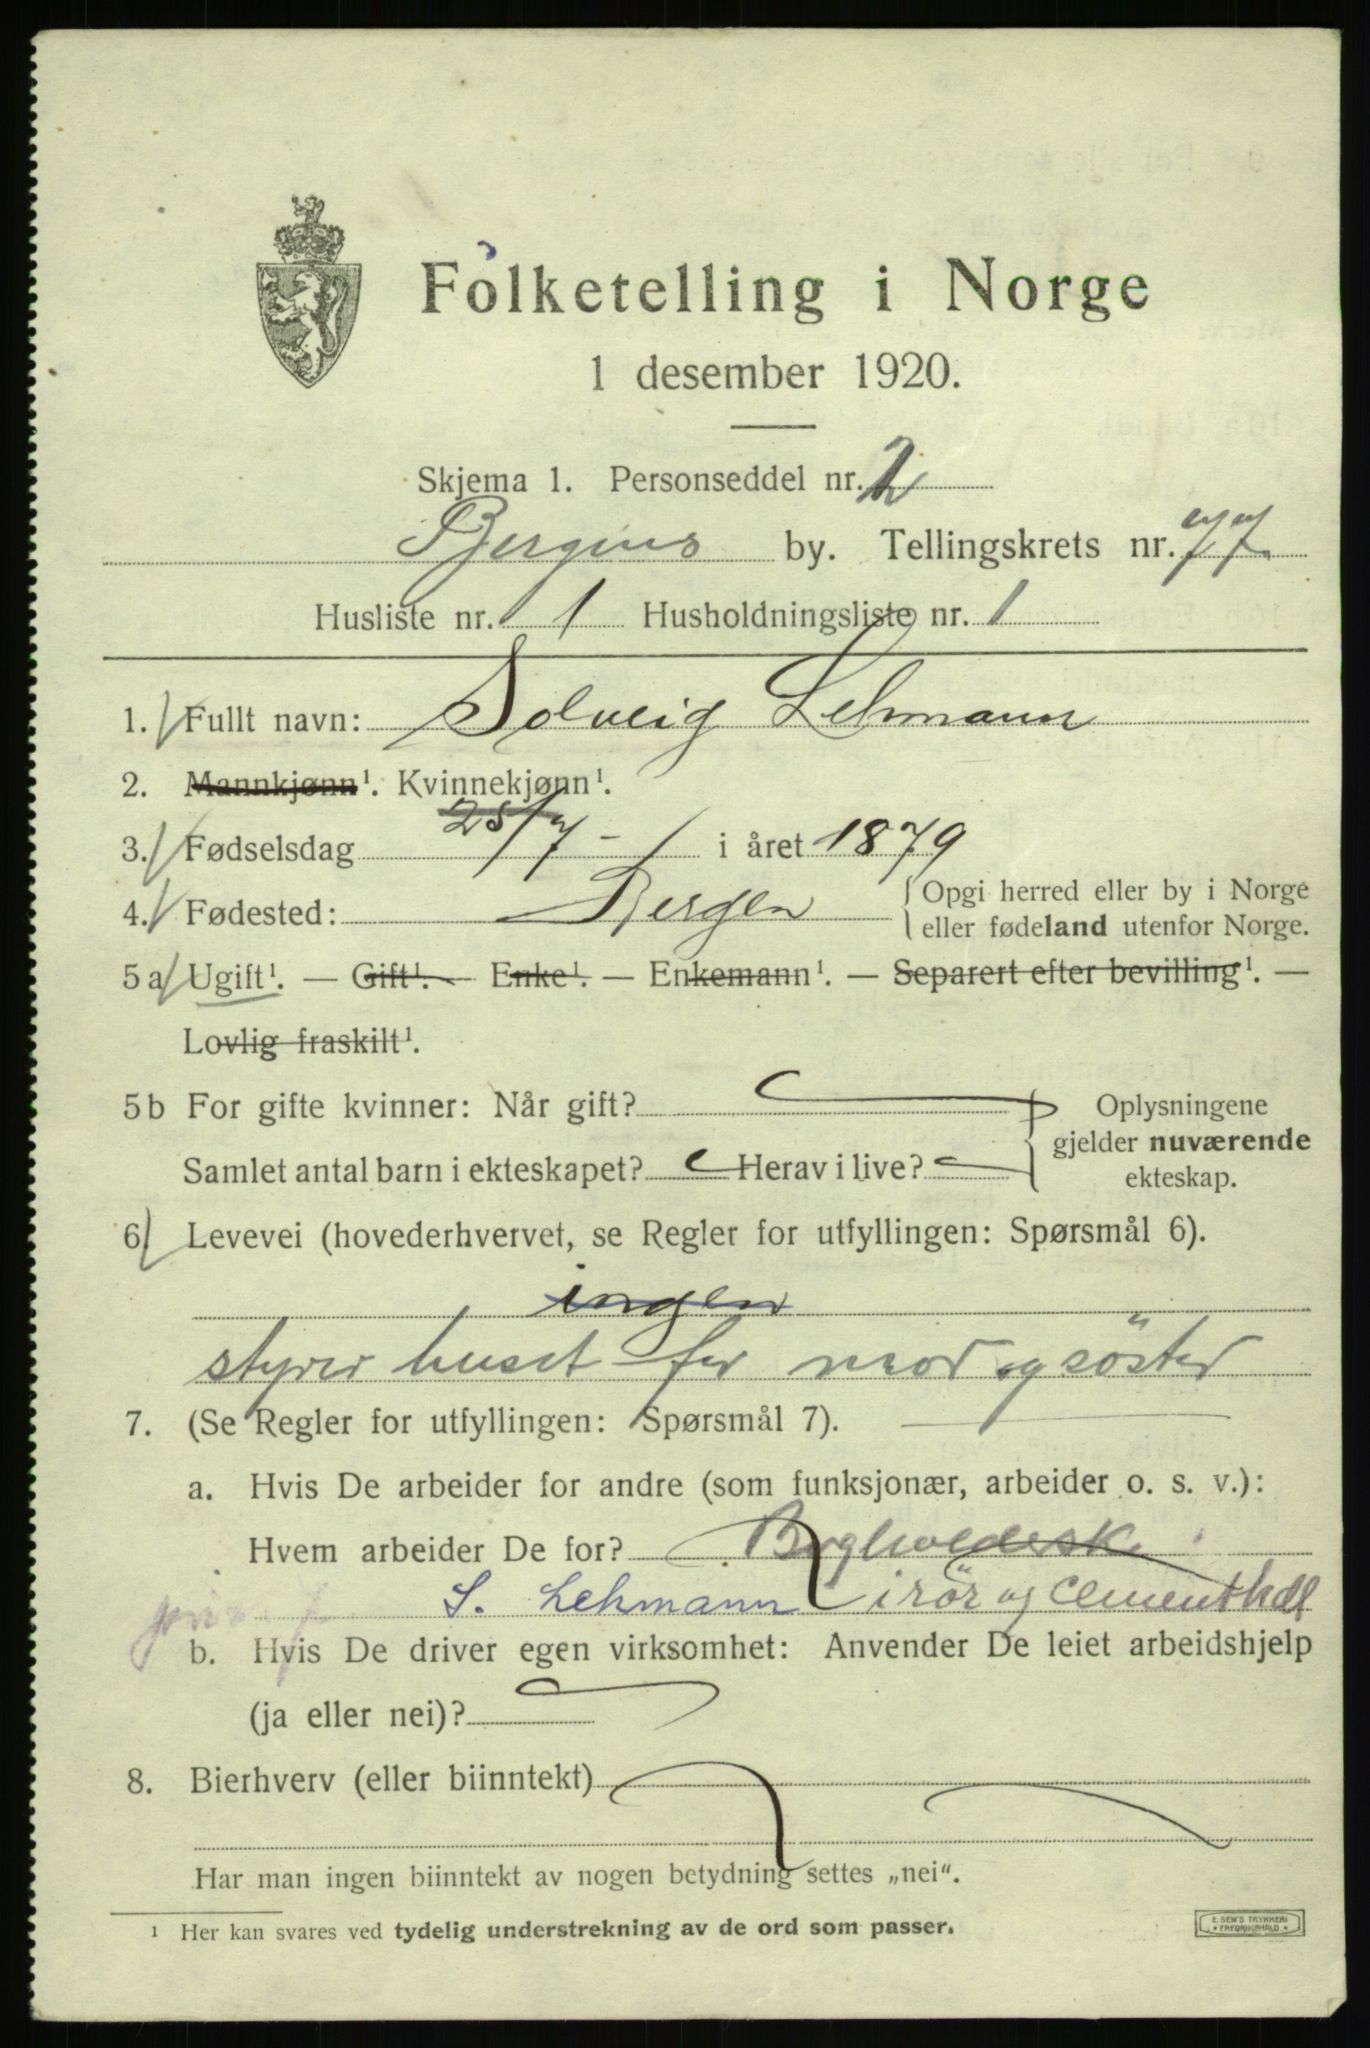 Folketelling i Norge
1 desember 1920.
Skjema 1. Personseddel nr. 2
Bergens by. Tellingskrets nr. 77
Husliste nr. 1 Husholdningsliste nr. 1
1. Fullt navn: Solveig Lehmann
2. Mannkjønn¹. Kvinnekjønn¹.
3. Fødselsdag 25/7 - i året 1879
4. Fødested: Bergen { Opgi herred eller by i Norge
eller fødeland utenfor Norge.
5 a Ugift¹. — Gift¹. Enke¹. — Enkemann¹. — Separert efter bevilling¹. —
Lovlig fraskilt¹.
5 b For gifte kvinner: Når gift? Oplysningene
gjelder nuværende
Samlet antal barn i ekteskapet? Herav i live? ekteskap.
6. Levevei (hovederhvervet, se Regler for utfyllingen: Spørsmål 6).
ingen
styrer huset for mor og søster
7. (Se Regler for utfyllingen: Spørsmål 7).
a. Hvis De arbeider for andre (som funksjonær, arbeider o. s. v.):
Hvem arbeider De for? Bogholderske
S. Lehmann i rör og cementhdl
b. Hvis De driver egen virksomhet: Anvender De leiet arbeidshjelp
(ja eller nei)?
8. Bierhverv (eller biinntekt)
Har man ingen biinntekt av nogen betydning settes „nei“.
¹ Her kan svares ved tydelig understrekning av de ord som passer.
E. SEM'S TRYKKERI
FREDRIKSHALD